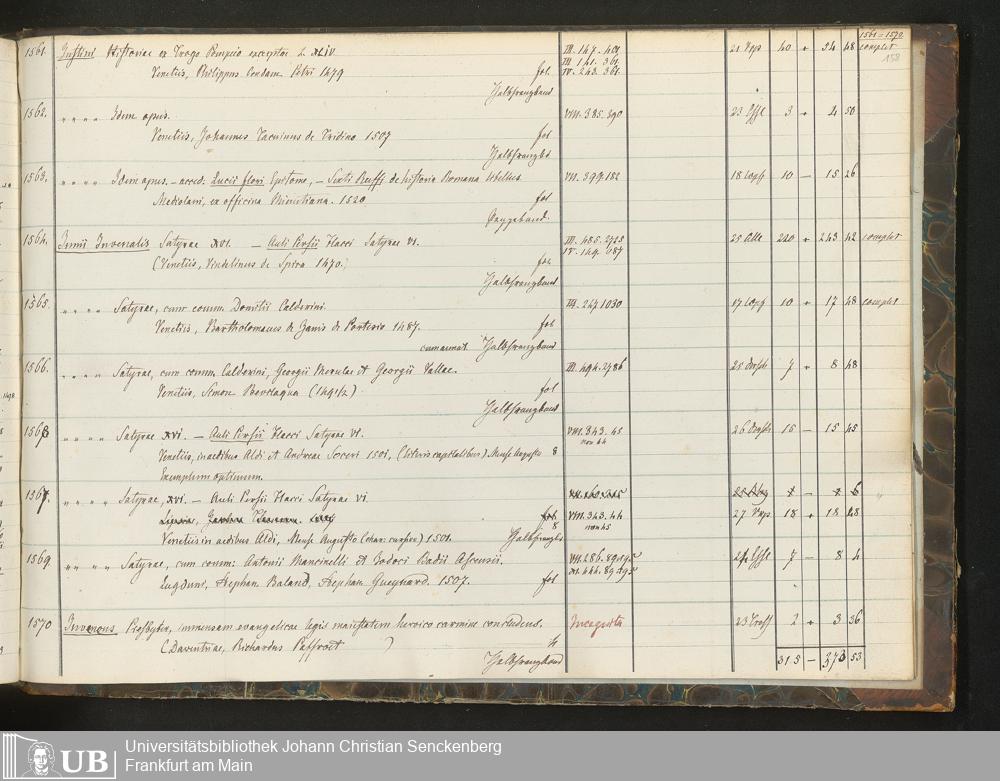 1561 = 1570
158
1561. Justini Historiae ex Trogo Pompeio excerptae L. XLIV III. 147. 409 21 40 + 54 48 complet
Venetiis, Philippus Condam Petri 1479 fol. III 141. 361
IV. 243. 361.
Halbfranzband
1562. " " " " Idem opus. VIII. 385. 390 23 3 + 4 50
Venetiis, Johannes Tacuinus de Tridino 1507 fol
Halbfrzbd
1563. " " " " Idem opus. - acced: Lucii flori Epitome, - Sexti Ruffi de historia Romana libellus. VII. 399 182 18 10 - 15 26
Mediolani, ex officina Minutiana. 1520. fol
Pappeband.
1564. Junii Juvenalis Satyrae XVI. - Auli Persii Flacci Satyrae VI. III. 485. 2725 25 220 + 243 42 complet
(Venetiis, Vindelinus de Spira 1470.) fol. IV. 149. 687
Halbfranzband
1565. " " " " Satyrae, cum comm. Domitii Calderini. III. 247 1030 17 10 + 17 48 complet
Venetiis, Bartholomaeus de Zanis de Portesio 1487. fol
cum annot. Halbfranzband
1566. " " " " Satyrae, cum comm. Calderini, Georgii Merulae et Georgii Vallae. III. 494. 2786 25 7 + 8 48
Venetiis, Simon Bevilaqua (1491/2) fol
Halbfranzband
1568 " " " " Satyrae XVI. - Auli Persii Flacci Satyrae VI. VIII. 343. 45 26 15 - 15 45
non 44
Venetiis, in aedibus Aldi et Andreae Soceri 1501, (literis capitalibus) Mense Augusto 8
Exemplum optimum.
1567. " " " " Satyrae, XVI. - Auli Persii Flacci Satyrae VI.
VIII. 343. 44 27 18 + 18 28
non 45
8
Venetiis in aedibus Aldi, Mense Augusto (char. cursivo) 1501. Halbfranzbd
1569 " " " " Satyrae, cum comm: Antonii Mancinelli et Jodoci Badii Ascensii. VII. 286. 89 7 - 8 4
Lugduni, Stephan Baland, Stephan Gueynard. 1507. fol XI. 444. 89
1570 Juvencus Presbyter, immensam evangelicae legis maiestatem heroico carmine concludens. Incognita 23 2 + 3 36
(Daventriae, Richardus Paffroet ) 4
Halbfranzband 315 - 373 53
UB Universitätsbibliothek Johann Christian Senckenberg
Frankfurt am Main